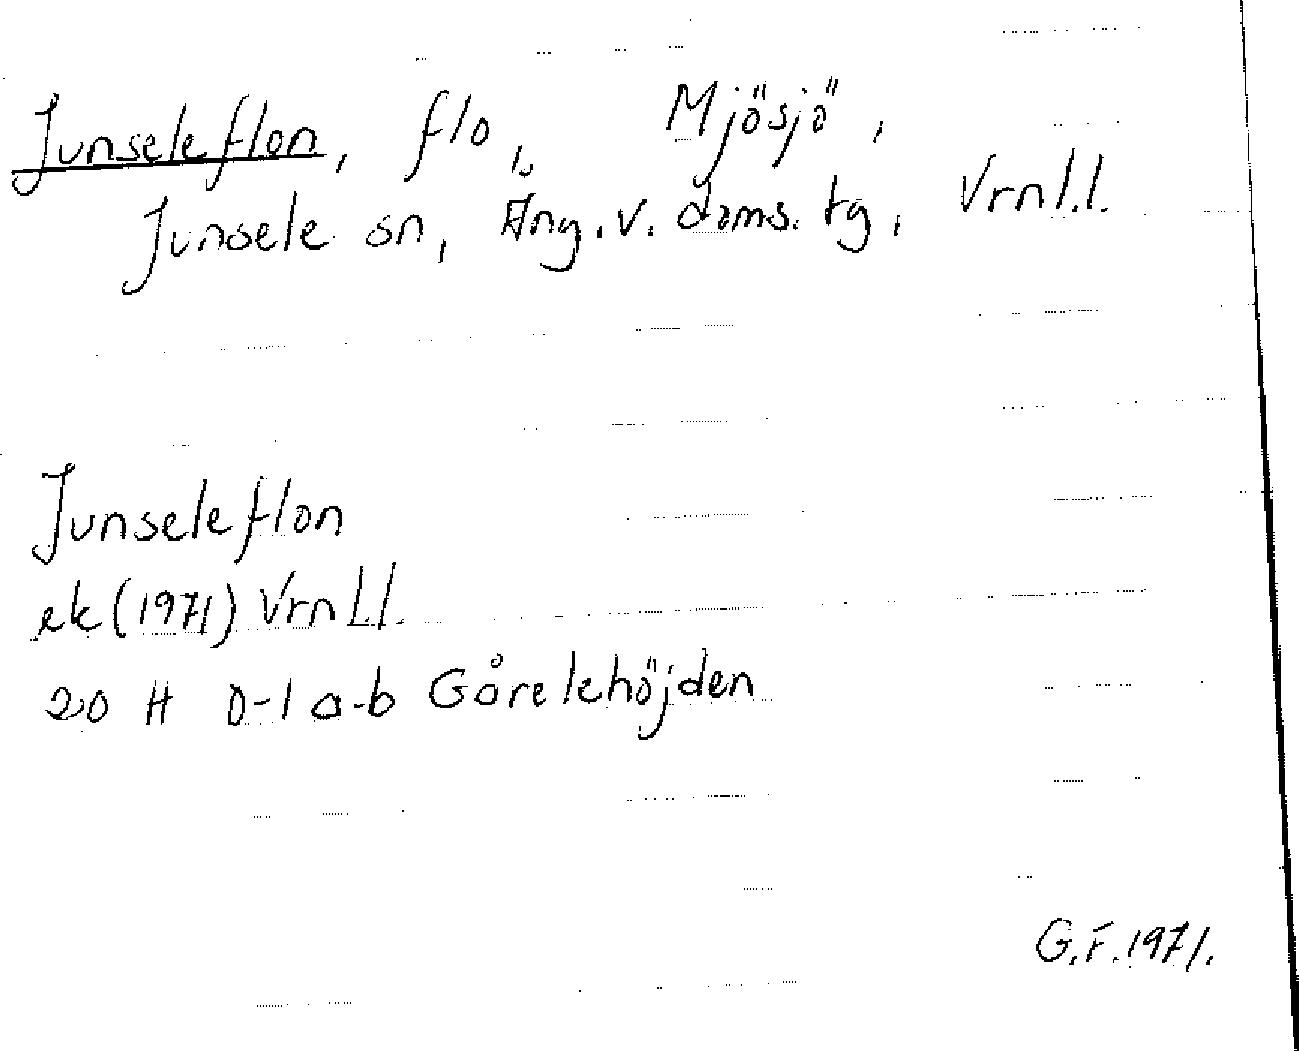 Junseleflon, flo, Mjösjö,
Junsele sn, Äng. v. doms. tg, Vrnl.l.
Junseleflon
ek (1971) Vrnl.l.
20 H 0-1 a-b Görelehöjden
G.F. 1971.